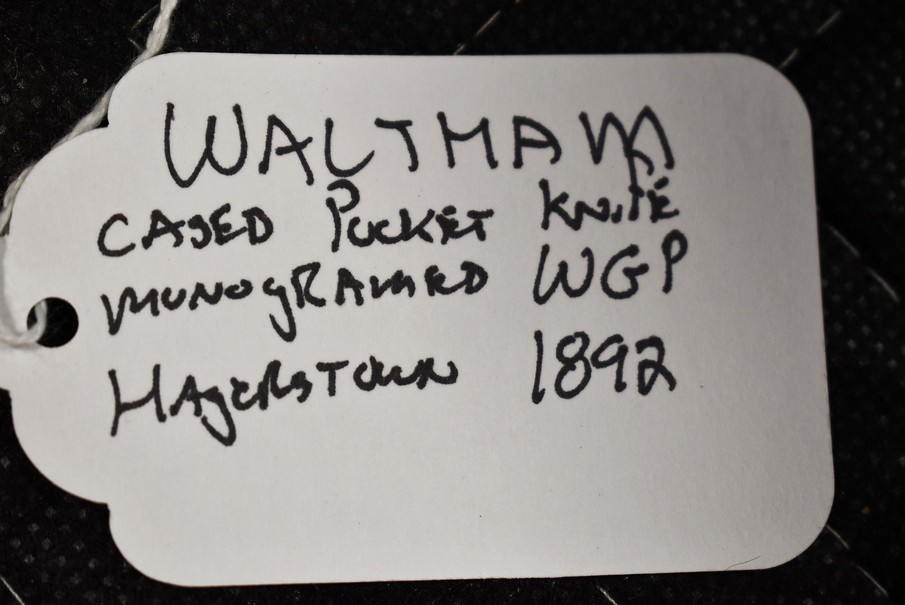 WALTHAM
CASED POCKET KNIFE
MONOGRAMED WGP
HAGERSTOWN 1892